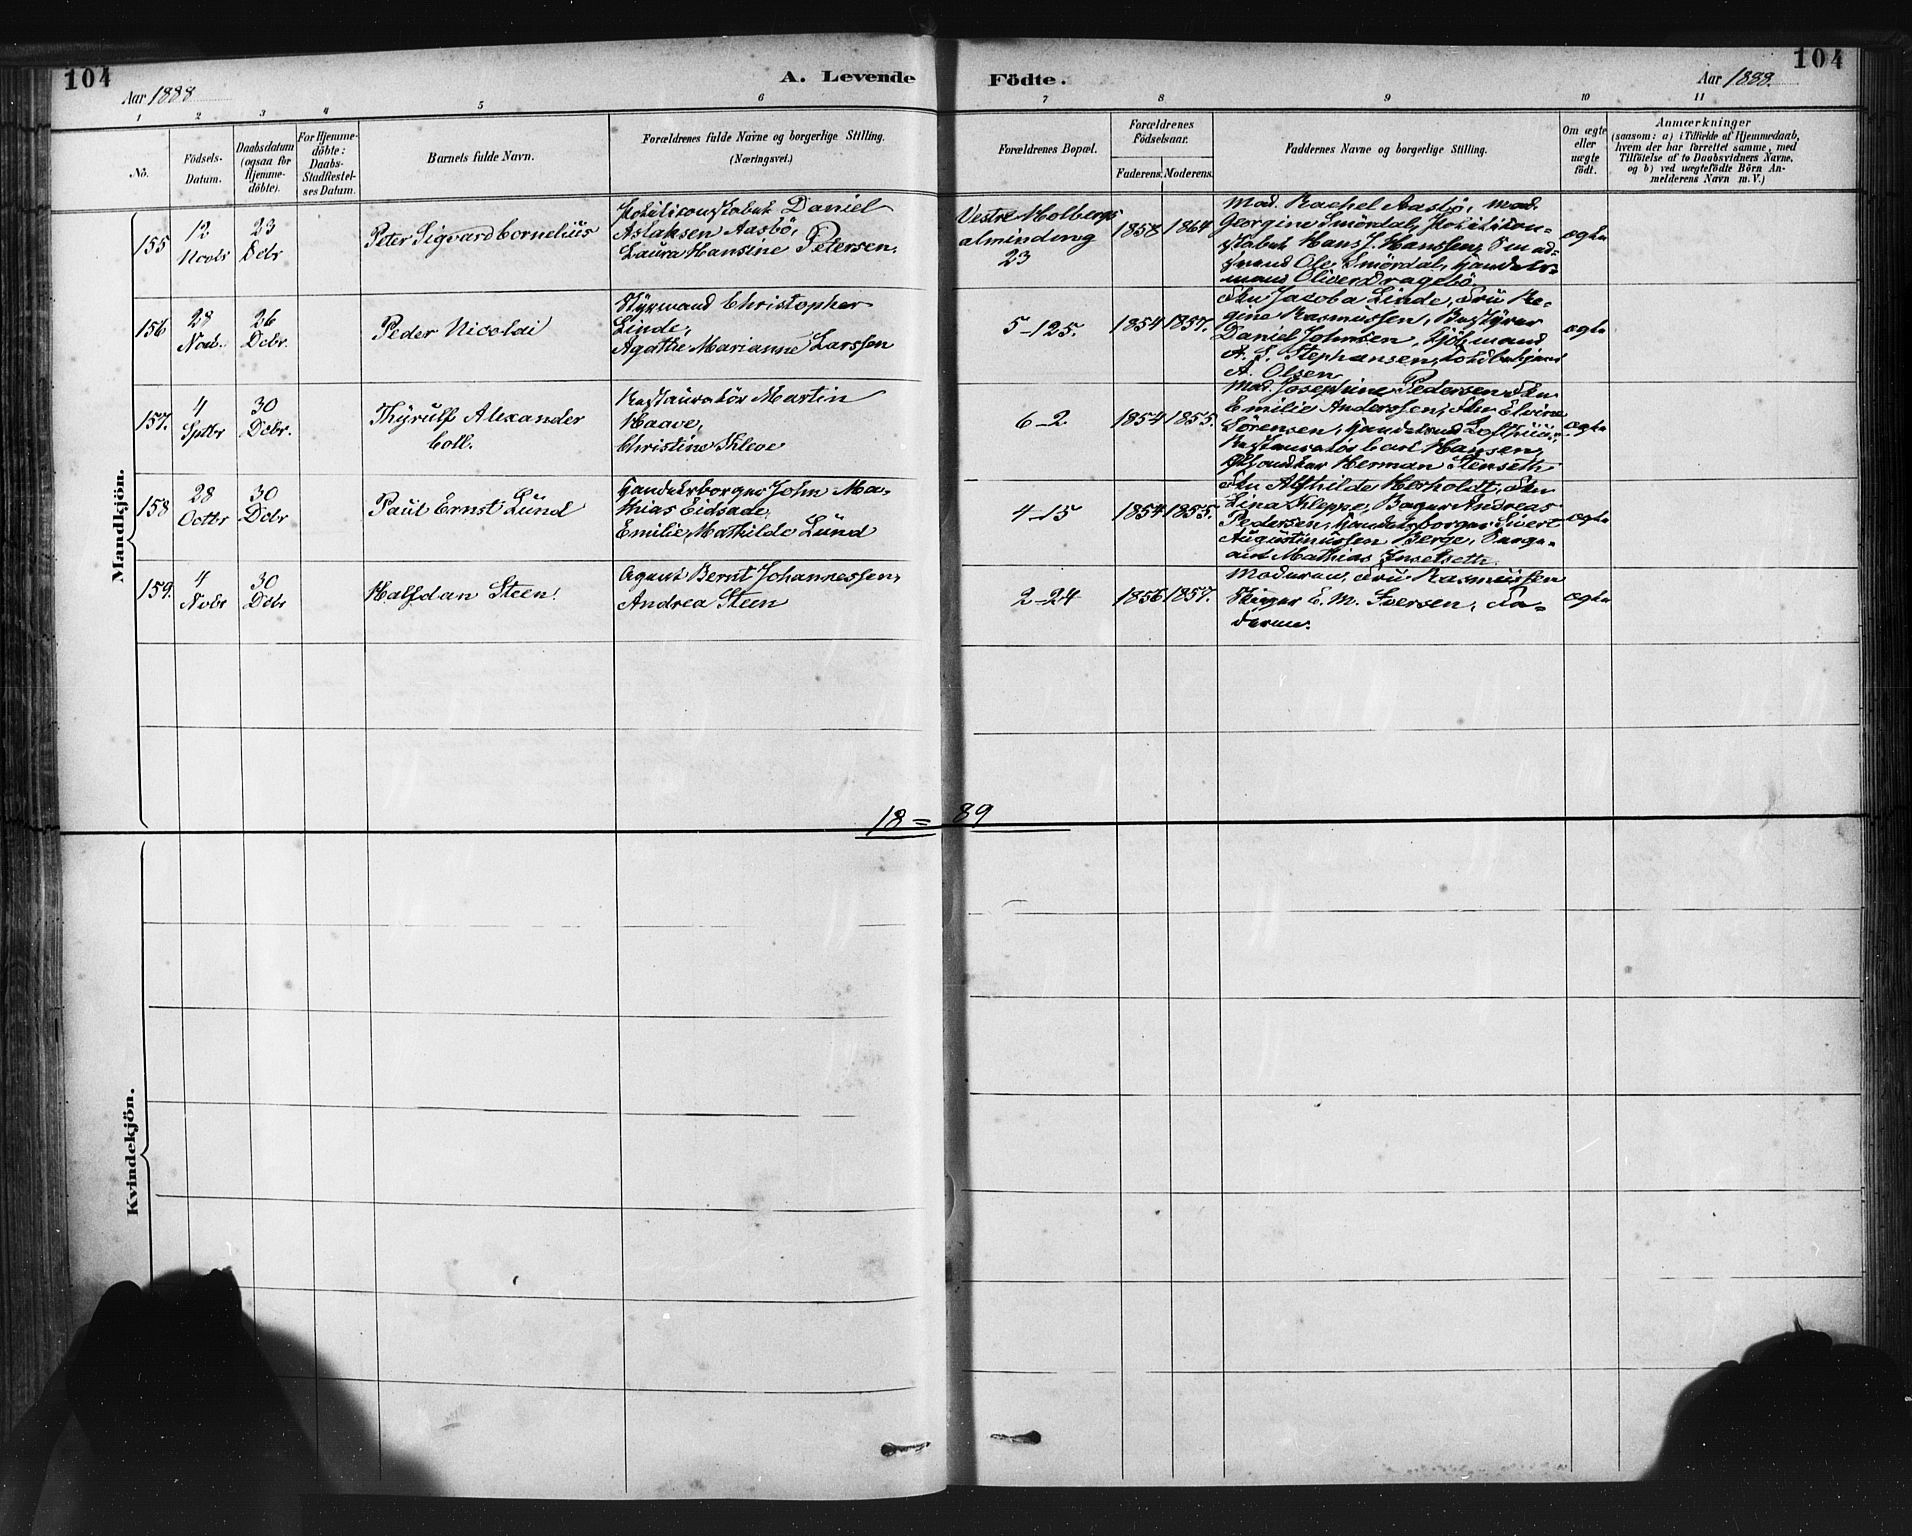 104
A. Levende Födte.
104
Aar 1888
Aar 1888.
1 2 3 4 5 6 7 8 9 10 11
No.
Födsels-
Datum.
Daabsdatum
(ogsaa for
Hjemme-
döbte).
For Hjemme-
döbte:
Daabs-
Stadfæstel-
ses Datum.
Barnets fulde Navn.
Forældrenes fulde Navne og borgerlige Stilling.
(Næringsvei.)
Forældrenes Bopæl.
Forældrenes
Födselsaar.
Faderens. Moderens.
Faddernes Navne og borgerlige Stilling.
Om ægte
eller
uægte
födt.
Anmærkninger
(saasom: a) i Tilfælde af Hjemmedaab,
hvem der har forrettet samme, med
Tilföielse af to Daabsvidners Navne,
og b) ved uægtefödte Börn An-
melderens Navn m. V.)
Mandkjön.
155
12
Novbr
23
Dcbr
Peter Sigvard Cornelius
Politiconstabel Daniel
Aslaksen Aasbö,
Laura Hansine Petersen.
Vestre Holbergs
almindeng
23
1858 1864
Mad. Rachel Aasbö, Mad.
Georgine Smördal, Politicon-
stabel Hans J. Hanssen,
Ole Smördal, Handels-
mand Oliver Dragebö.
ægte
156
28
Novb.
26
Dcbr.
Peder Nicolai
Styrmand Christopher
Linde,
Agathe Marianne Larssen
5-125.
1854 1857.
Jacoba Linde, Fru Re-
gine Rasmussen, Bestyrer
Daniel Johnsen, Kjöbmand
A. S. Stephansen, Toldbetjent
A. Olsen
ægte
157.
4
Sptbr
30
Dcbr.
Thyrulf Alexander
Coll.
Restauratör Martin
Haave,
Christine
6-2
1854 1855.
Mad. Josephine Pedersen
Emilie Anderssen, Elvine
Sörensen,
Restauratör Carl Hansen,
Herman Stenseth
ægte
158
28
Octbr
30
Dcbr
Paul Ernst Lund
Handelsborger John Ma-
thias Eidsade,
Emilie Mathilde Lund
4-15
1854 1855.
Alfhilde Herholdt,
Lina Kleppe, Bager Andreas
Pedersen, Handelsborger Sivert
Augustinussen Berge, Serge-
ant Mathias
ægte
159.
4
Nvbr
30
Dcbr
Halfdan Steen.
Agent Bernt Johannessen,
Andrea Steen
2-24
1856 1857.
Moderen, Fru Rasmussen
E. M. Iversen, Fa-
deren.
ægte
18 = 89
Kvindekjön.